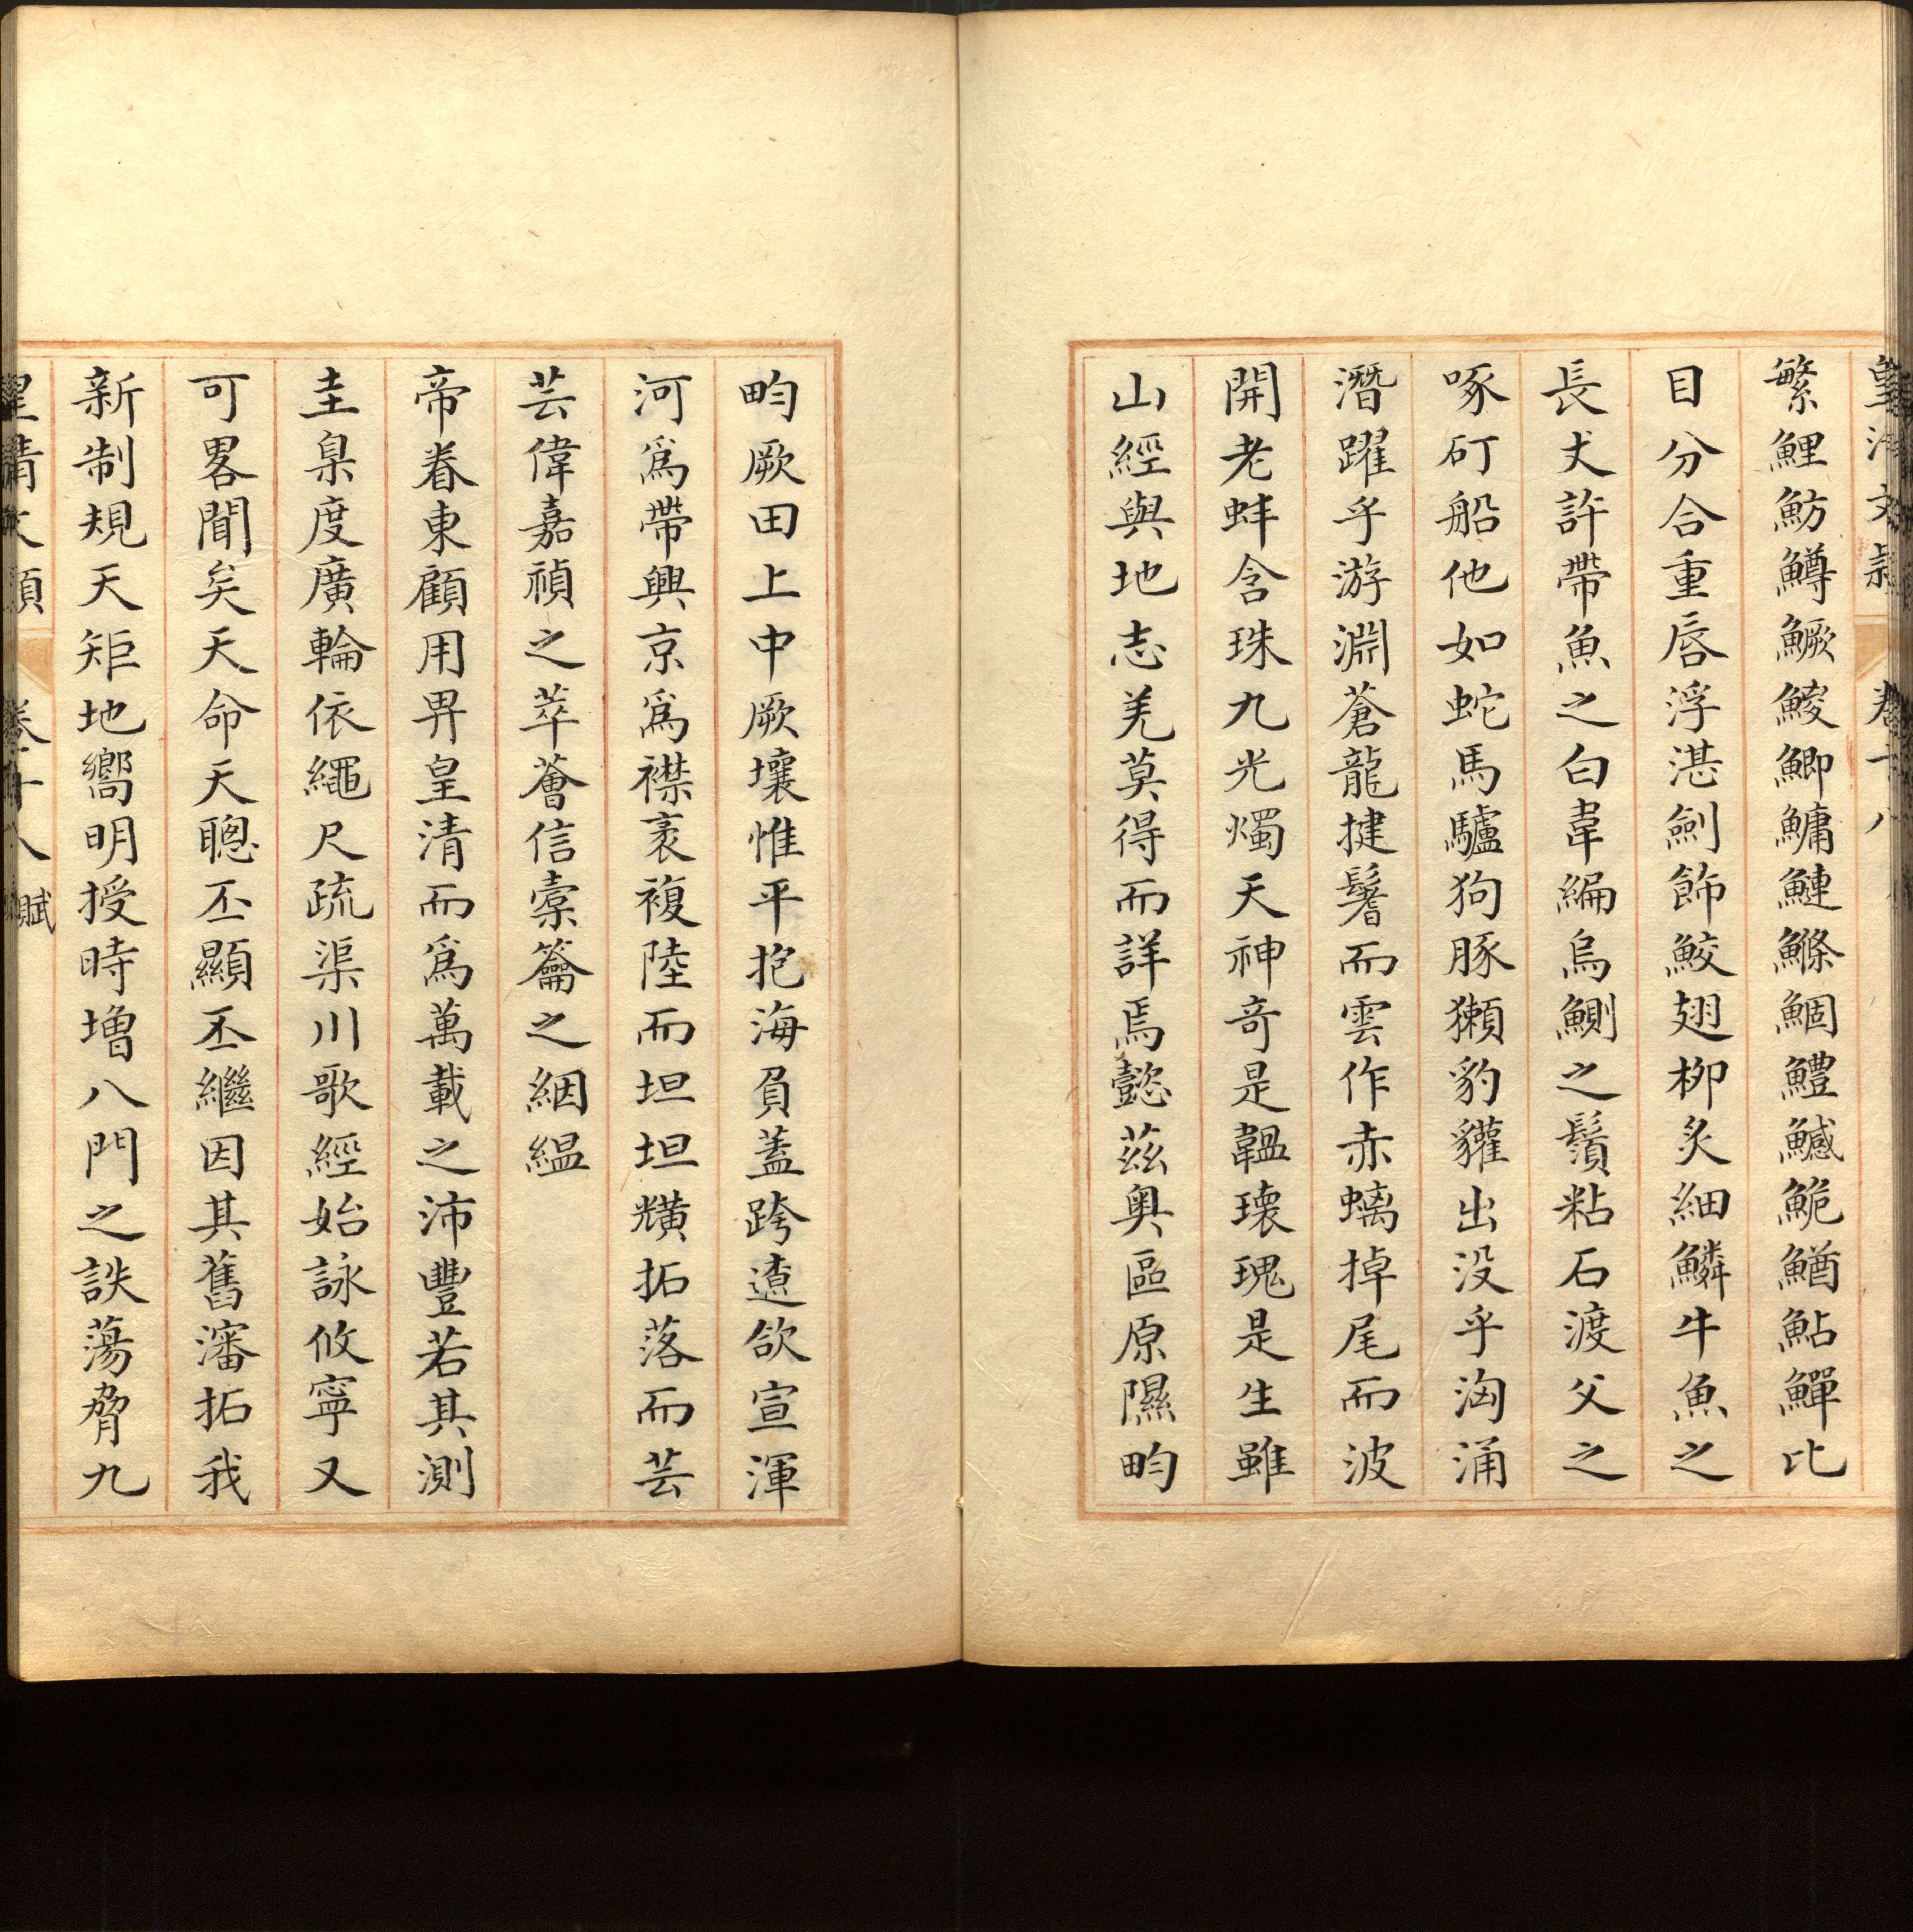 皇清文穎　卷十八
繁鯉魴鱒鱖鯪鯽鱅鰱鰷鯝鱧鱤鮠鰌鮎鱓比
目分合重唇浮湛劍飾鮫翅柳炙細鱗牛魚之
長丈許帶魚之白韋編烏鰂之鬚粘石渡父之
啄矴船他如蛇馬驢狗豚獺豹貛出没乎洶涌
潛躍乎游淵蒼龍揵鬐而雲作赤螭掉尾而波
開老蚌含珠九光燭天神竒是韞瓌瑰是生雖
山經與地志羌莫得而詳焉懿茲奥區原隰畇
畇厥田上中厥壤惟平抱海負蓋跨遼欱宣渾
河爲帶興京爲襟袤複陸而坦坦㶇拓落而芸
芸偉嘉禎之萃薈信橐籥之絪縕
帝眷東顧用畀皇清而爲萬載之沛豐若其測
圭臬度廣輪依繩尺疏渠川歌經始詠攸寧又
可畧聞矣天命天聰丕顯丕繼因其舊瀋拓我
新制規天矩地嚮明授時增八門之詄蕩脅九
皇清文穎　卷十八　賦